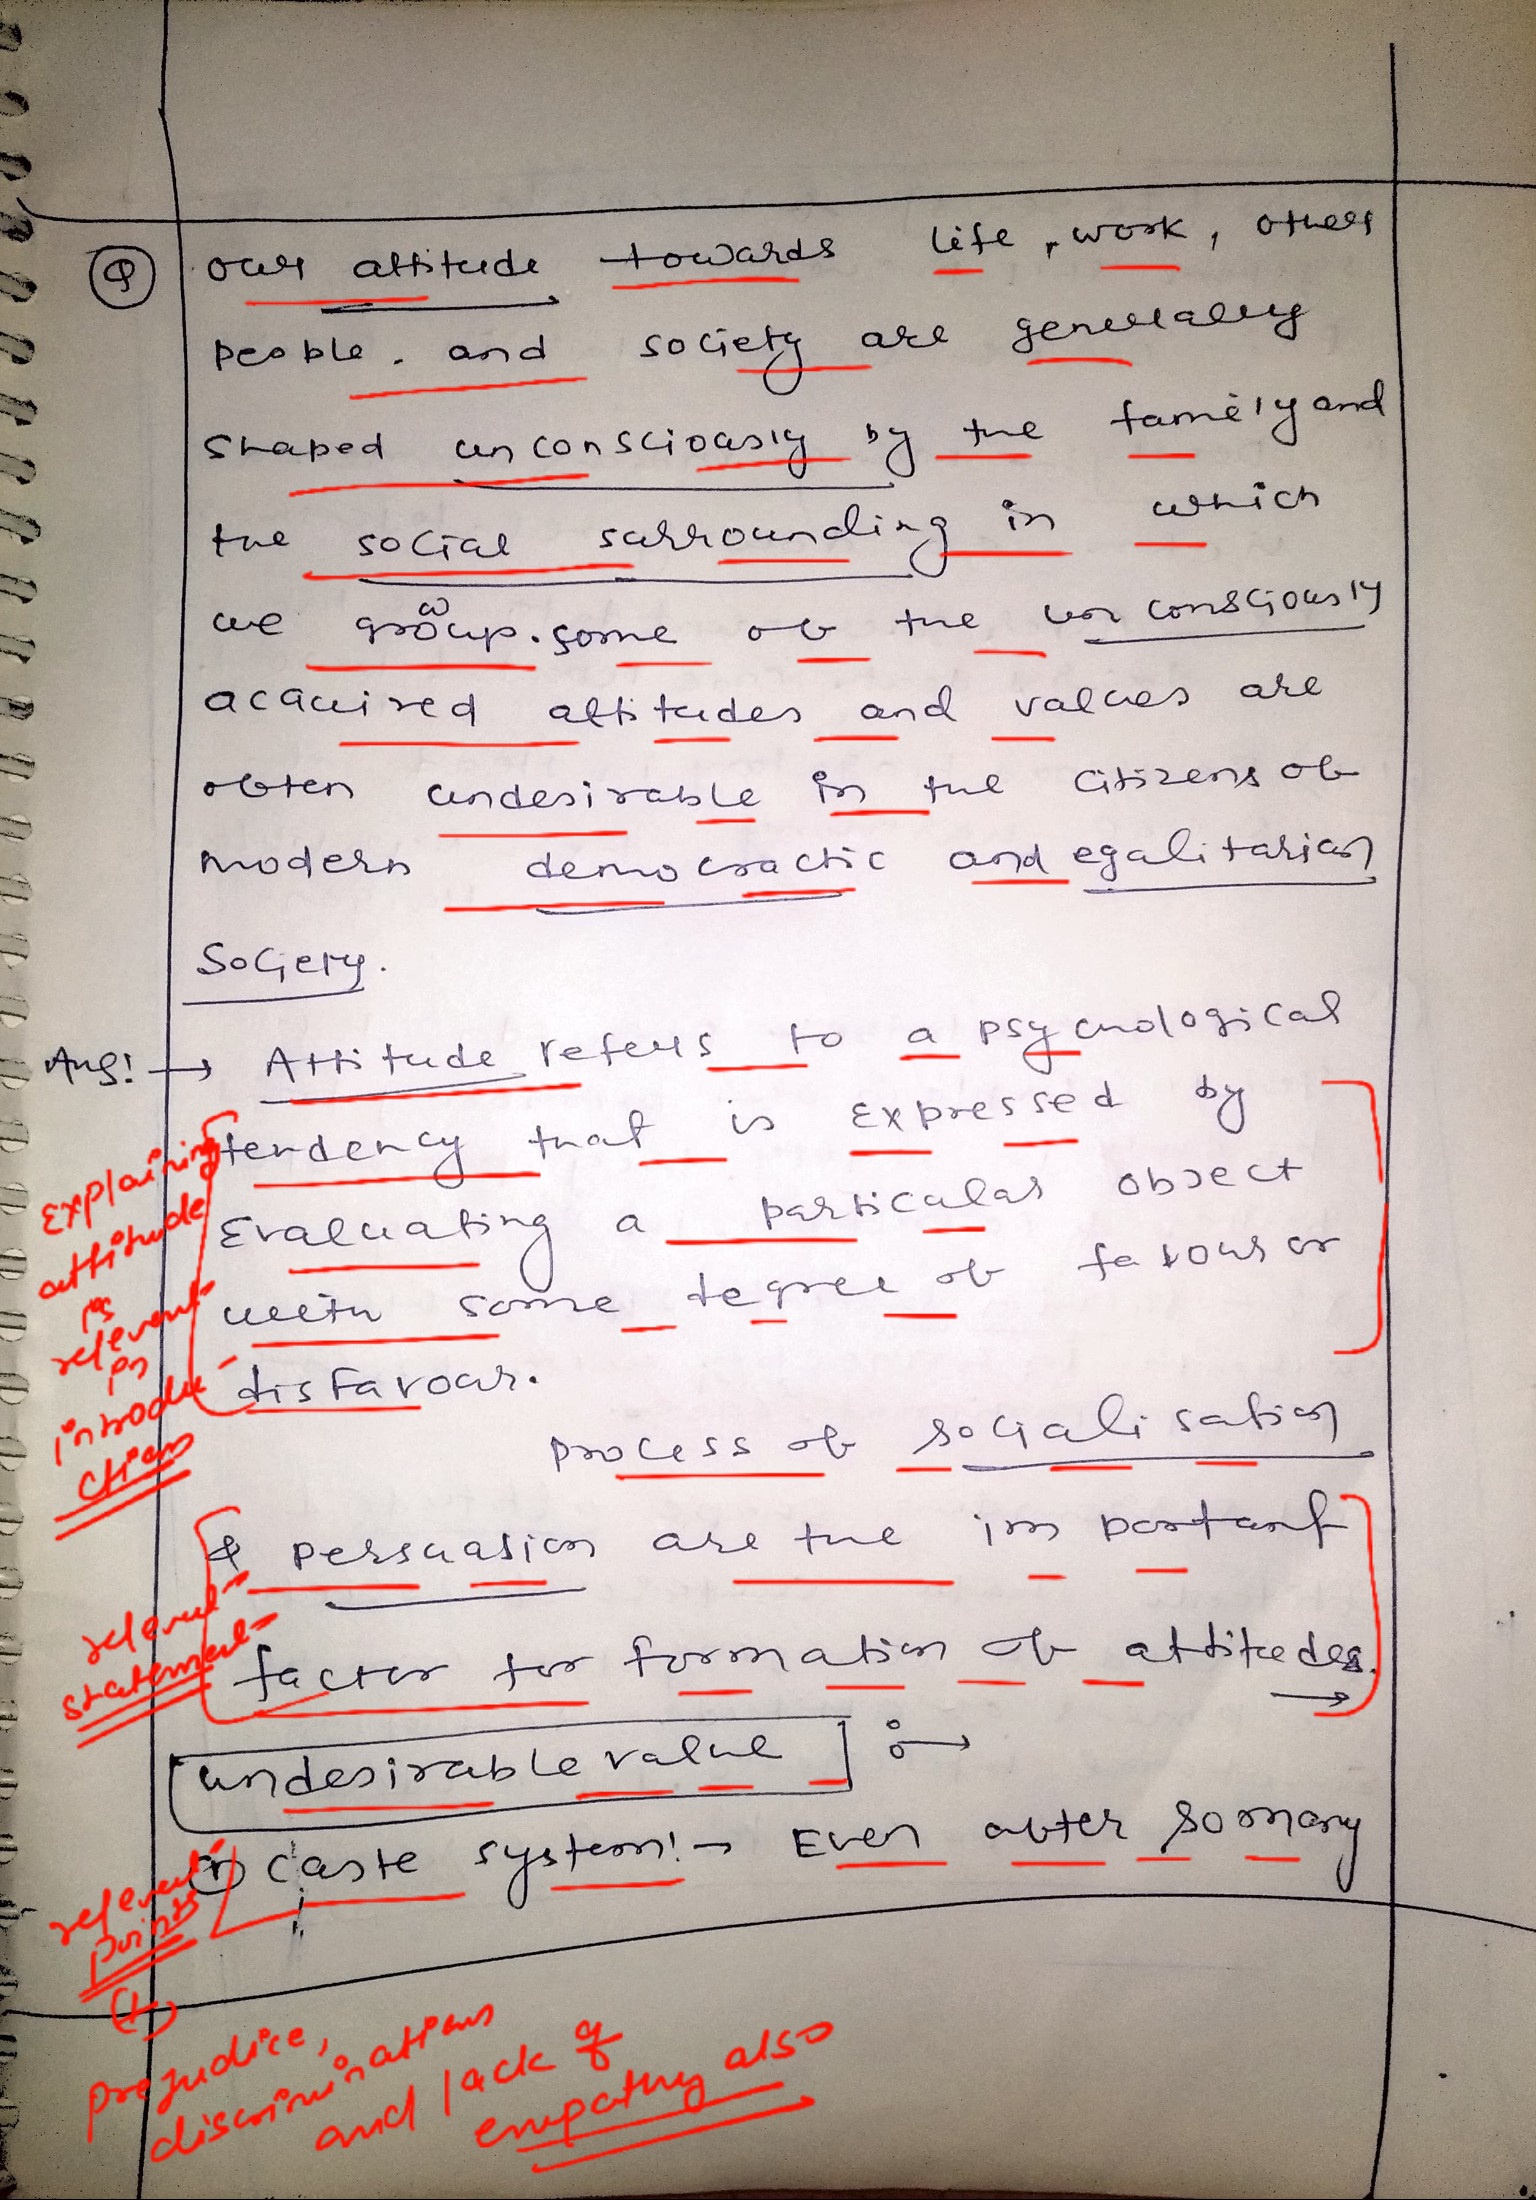 Q our attitude towards life, work, others
people. and society are generally
shaped unconsciously by the family and
the social surrounding in which
we grow up. some of the unconsciously
acquired attitudes and values are
often undesirable in the citizens of
modern democractic and egalitarian
Society.
Ans! → Attitude refers to a psychological
tendency that is expressed by
Evaluating a particular object
with some degree of favour or
disfavour.
process of socialisation
& persuasion are the important
factor for formation of attitudes.
undesirable value :→
① Caste system! → Even after so many
Explaining
attitude
is
relevant
in
introdu
ction
relevant
statement
relevant
points
(+)
prejudice,
discriminations
and lack of
empathy also